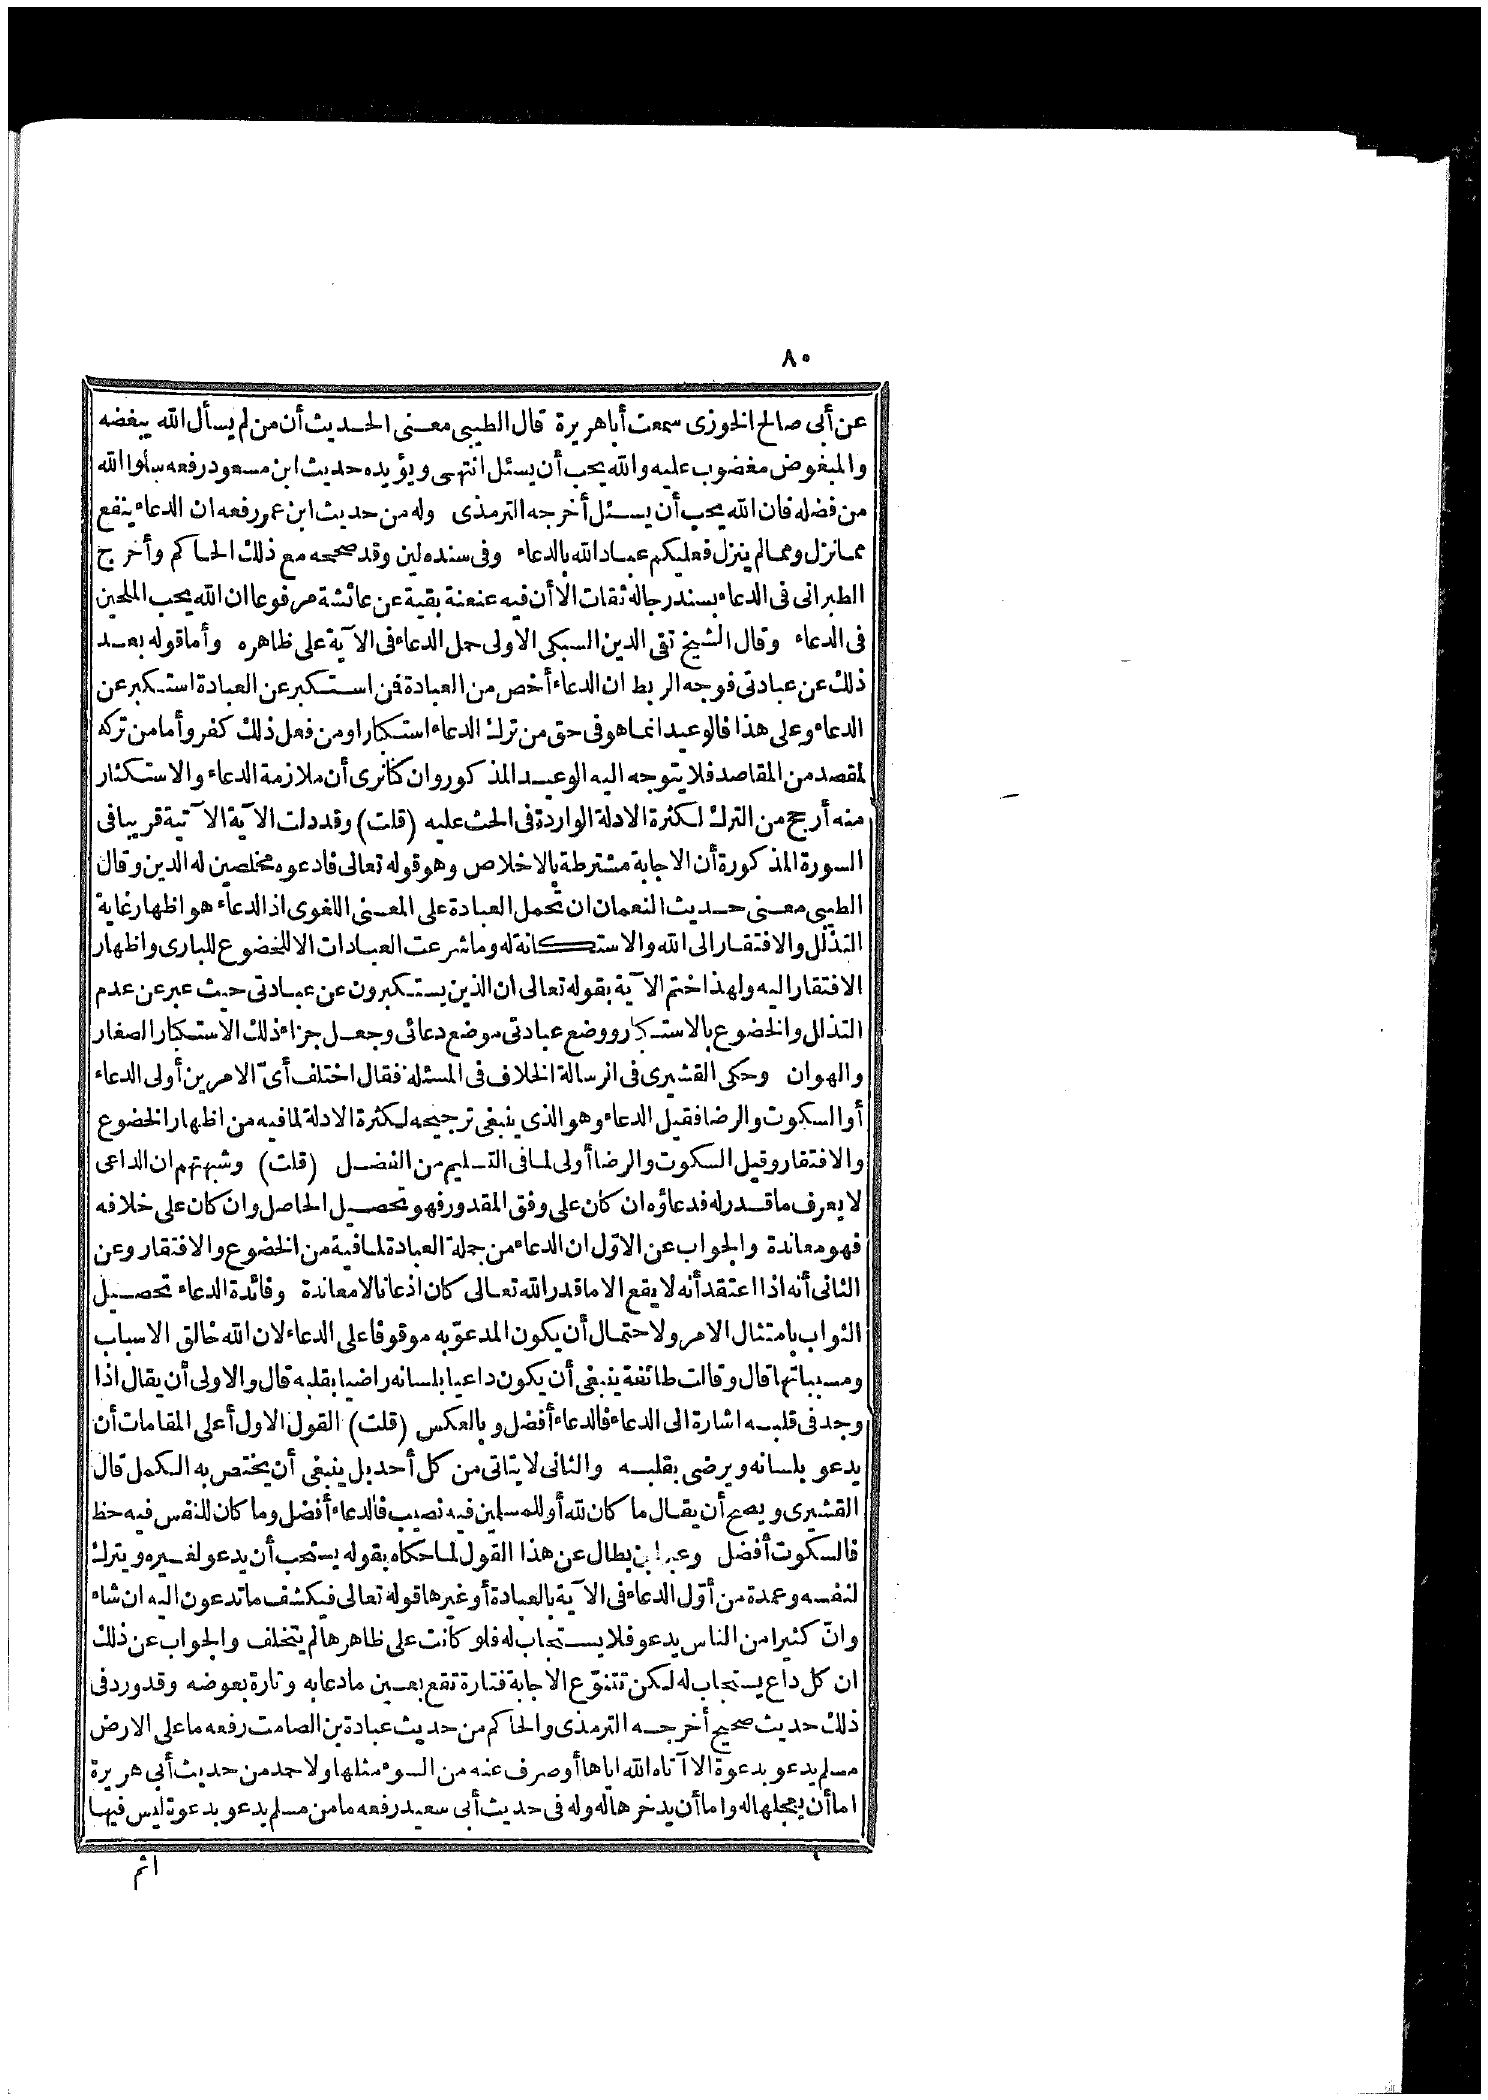 ٨٠
عن أبى صالح الخوزى سمعت أبا هريرة قال الطيبى معنى الحديث أن من لم يسأل الله يبغضه
والمبغوض مغضوب عليه والله يحب أن يسئل انتهى ويؤيده حديث ابن مسعود رفعه سلوا الله
من فضله فان الله يحب أن يسئل أخرجه الترمذى وله من حديث ابن عمر رفعه ان الدعاء ينفع
مما نزل ومما لم ينزل فعليكم عباد الله بالدعاء وفى سنده لين وقد صححه مع ذلك الحاكم وأخرج
الطبرانى فى الدعاء بسند رجاله ثقات الا أن فيه عنعنة بقية عن عائشة مرفوعا ان الله يحب الملحين
فى الدعاء وقال الشيخ تقى الدين السبكى الاولى حمل الدعاء فى الآية على ظاهره وأما قوله بعد
ذلك عن عبادتى فوجه الربط ان الدعاء أخص من العبادة فمن استكبر عن العبادة استكبر عن
الدعاء وعلى هذا فالوعيد انما هو فى حق من ترك الدعاء استكبارا ومن فعل ذلك كفر وأما من تركه
لمقصد من المقاصد فلا يتوجه اليه الوعيد المذكور وان كنا نرى أن ملازمة الدعاء والاستكثار
منه أرجح من الترك لكثرة الادلة الواردة فى الحث عليه (قلت) وقد دلت الآية الآتية قريبا فى
السورة المذكورة أن الاجابة مشترطة بالاخلاص وهو قوله تعالى فادعوه مخلصين له الدين وقال
الطيبى معنى حديث النعمان ان تحمل العبادة على المعنى اللغوى اذ الدعاء هو اظهار غاية
التذلل والافتقار الى الله والاستكانة له وما شرعت العبادات الا للخضوع للبارى واظهار
الافتقار اليه ولهذا ختم الآية بقوله تعالى ان الذين يستكبرون عن عبادتى حيث عبر عن عدم
التذلل والخضوع بالاستكبار ووضع عبادتى موضع دعائى وجعل جزاء ذلك الاستكبار الصغار
والهوان وحكى القشيرى فى الرسالة الخلاف فى المسئلة فقال اختلف أىّ الامرين أولى الدعاء
أو السكوت والرضا فقيل الدعاء وهو الذى ينبغى ترجيحه لكثرة الادلة لما فيه من اظهار الخضوع
والافتقار وقيل السكوت والرضا أولى لما فى التسليم من الفضل (قلت) وشبهتهم ان الداعى
لا يعرف ما قدر له فدعاؤه ان كان على وفق المقدور فهو تحصيل الحاصل وان كان على خلافه
فهو معاندة والجواب عن الاوّل ان الدعاء من جملة العبادة لما فيه من الخضوع والافتقار وعن
الثانى أنه اذا اعتقد أنه لا يقع الا ما قدر الله تعالى كان اذعانا لا معاندة وفائدة الدعاء تحصيل
الثواب بامتثال الامر ولاحتمال أن يكون المدعوّ به موقوفا على الدعاء لان الله خالق الاسباب
ومسبباتها قال وقالت طائفة ينبغى أن يكون داعيا بلسانه راضيا بقلبه قال والاولى أن يقال اذا
وجد فى قلبه اشارة الى الدعاء فالدعاء أفضل وبالعكس (قلت) القول الاول أعلى المقامات أن
يدعو بلسانه ويرضى بقلبه والثانى لا يتاتى من كل أحد بل ينبغى أن يختص به الكمل قال
القشيرى ويصح أن يقال ما كان لله أو للمسلمين فيه نصيب فالدعاء أفضل وما كان للنفس فيه حظ
فالسكوت أفضل وعبر ابن بطال عن هذا القول لما حكاه بقوله يستحب أن يدعو لغيره ويترك
لنفسه وعمدة من أوّل الدعاء فى الآية بالعبادة أو غيرها قوله تعالى فيكشف ما تدعون اليه ان شاء
وانّ كثيرا من الناس يدعو فلا يستجاب له فلو كانت على ظاهرها لم يتخلف والجواب عن ذلك
ان كل داع يستجاب له لكن تتنوّع الاجابة فتارة تقع بعين ما دعا به وتارة بعوضه وقد ورد فى
ذلك حديث صحيح أخرجه الترمذى والحاكم من حديث عبادة بن الصامت رفعه ما على الارض
مسلم يدعو بدعوة الا آتاه الله اياها أو صرف عنه من السوء مثلها ولاحمد من حديث أبى هريرة
اما أن يعجلها له واما أن يدخرها له وله فى حديث أبى سعيد رفعه ما من مسلم يدعو بدعوة ليس فيها
اثم